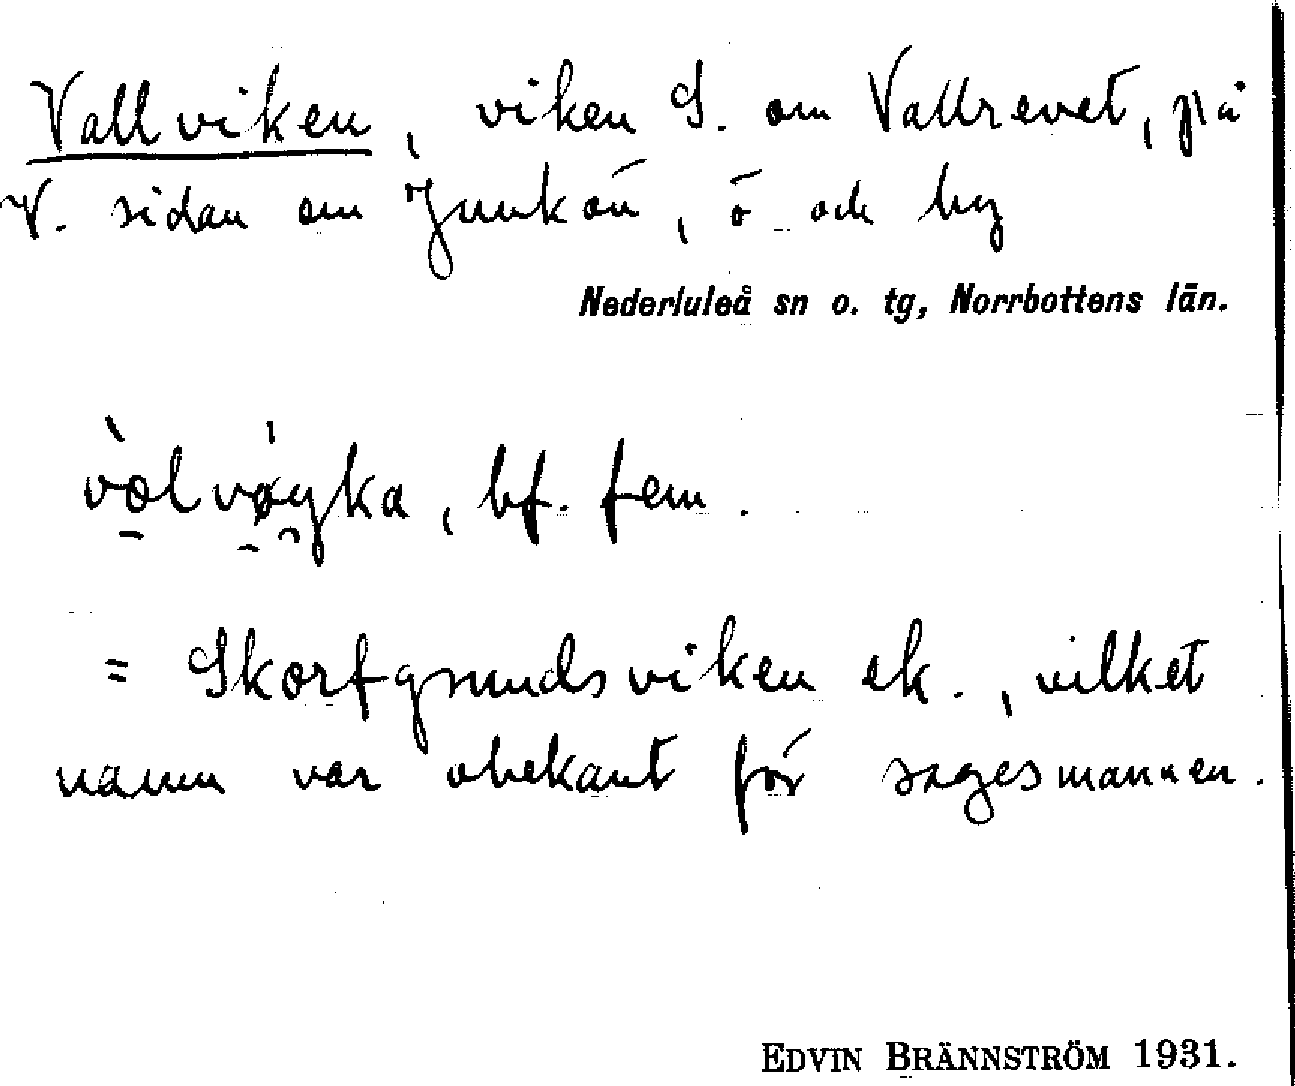 Vallviken, viken S. om Vallrevet, på
V. sidan om Junkön, ö och by
Nederluleå sn o. tg, Norrbottens län.
bf. fem.
= Skorfgrundsviken ek., vilket
namn var obekant för sagesmannen.
EDVIN BRÄNNSTRÖM 1931.